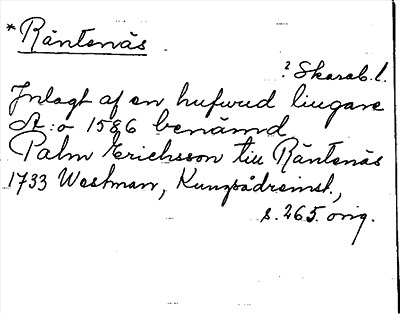 *Räntenäs
? Skarab. l.
Inlagt af en hufwud liugare
A:o 1586 benämd
Palm Erichsson till Räntenäs
1733 Westman, Kungsådreinst.,
s. 265. orig.